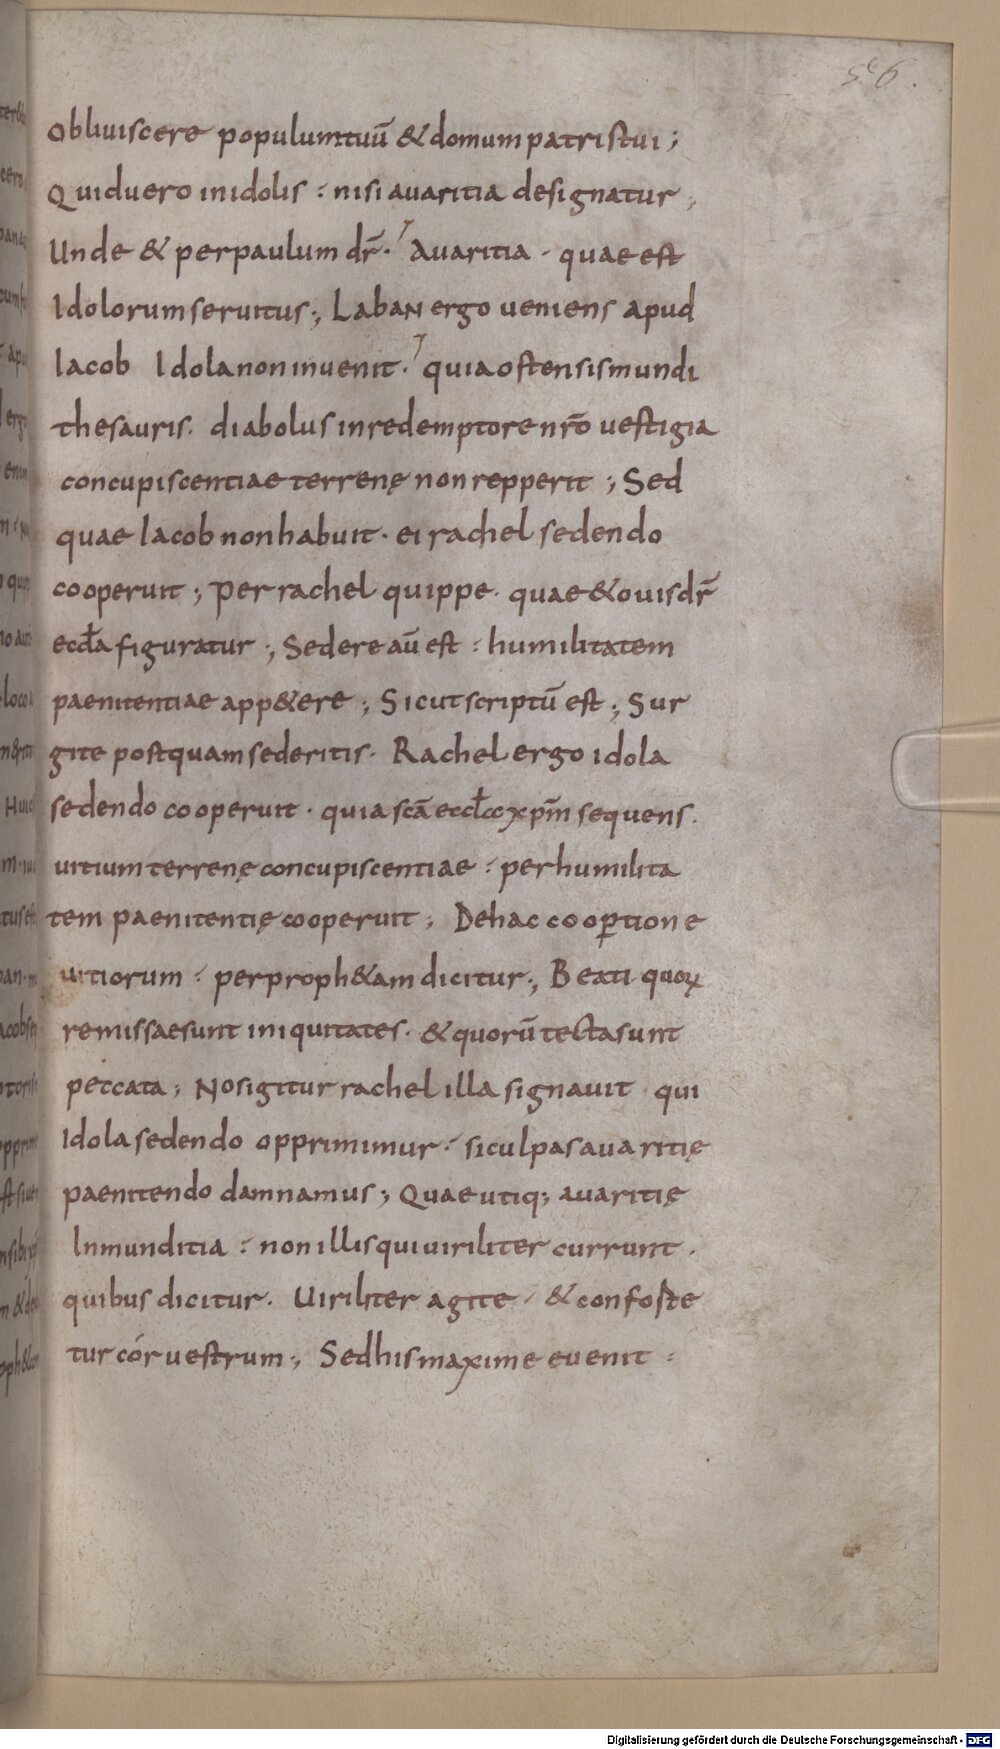 56.
obliuiscere populum tuū & domum patris tui;
Quid uero in idolis : nisi auaritia designatur;
Unde & per paulum dr̄. Auaritia · quae est
Idolorum seruitus; Laban ergo ueniens apud
Iacob Idola non inuenit. quia ostensis mundi
thesauris. diabolus in redemptore nr̄o uestigia
concupiscentiae terrenę non repperit; Sed
quae Iacob non habuit. ei rachel sedendo
cooperuit; Per rachel quippe. quae & ouis dr̄
eccła figuratur; Sedere aū est : humilitatem
paenitentiae app&ere; Sicut scriptū est; Sur
gite postquam sederitis. Rachel ergo idola
sedendo cooperuit. quia scā eccła xp̄m sequens.
uitium terrenę concupiscentiae : per humilita
tem paenitentię cooperuit; De hac coop̱tione
uitiorum : per proph&am dicitur; Beati quoꝝ
remissae sunt iniquitates. & quorū tecta sunt
peccata; Nos igitur rachel illa signauit qui
Idola sedendo opprimimur : si culpas auaritię
paenitendo damnamus; Quae utiq; auaritię
Inmunditia : non illis qui uiriliter currunt.
quibus dicitur. Uiriliter agite & conforte
tur cór uestrum; Sed his maxime euenit :
Digitalisierung gefördert durch die Deutsche Forschungsgemeinschaft - DFG